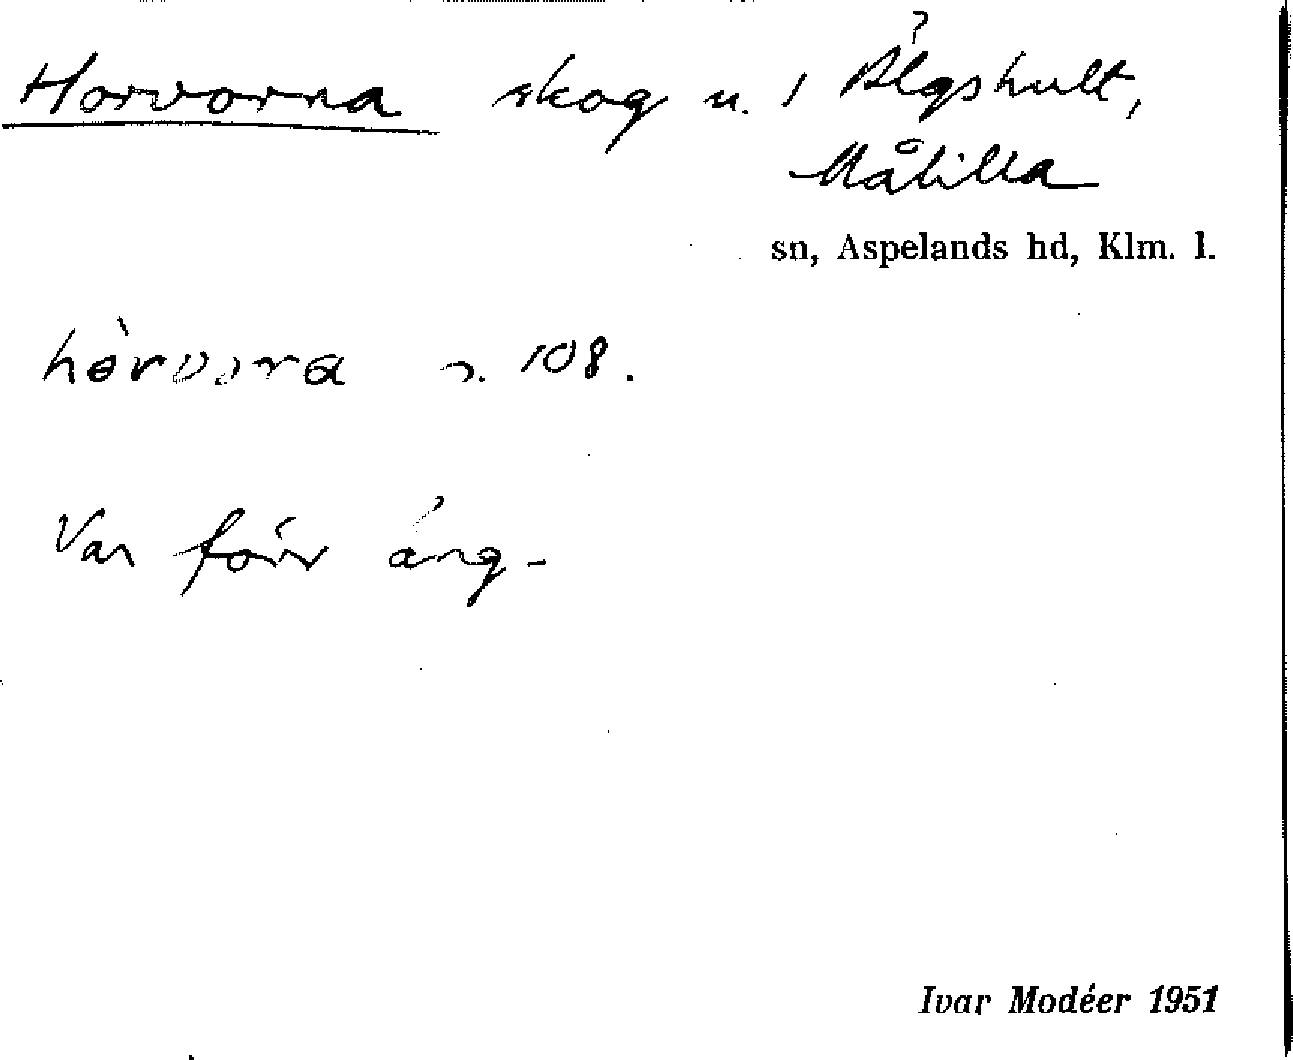 Horvorna skog u. 1 Älgshult,
Målilla
sn, Aspelands hd, Klm. l.
hòrvora s. 108.
Var förr äng.
Ivar Modéer 1951